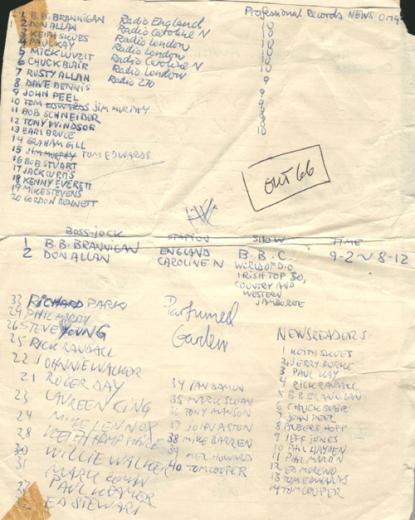 Professional Records NEWS
1 B.B. BRANNIGAN Radio England 10
2 DON ALLAN Radio Caroline N 10
3 KEITH SKUES Radio London 10
4 PAUL KAY Radio London 10
5 MICK LUVZIT Radio Caroline N 10
6 CHUCK BLAIR Radio London
7 RUSTY ALLAN Radio 270
8 DAVE DENNIS
9 JOHN PEEL
10 TOM EDWARDS JIM MURPHY
11 BOB SCHNEIDER
12 TONY WINDSOR
13 EARL BRUCE
14 GRAHAM GILL
15 JIM MURPHY TOM EDWARDS
16 BOB STUART
17 JACK CURTIS
18 KENNY EVERETT
19 MIKE STEVENS
20 GORDON BENNETT
OUT 66
BOSS-JOCK STATION SHOW TIME
1 B.B. BRANNIGAN ENGLAND B.B.C. 9-2
2 DON ALLAN CAROLINE N WORLD OF DIO 8-12
IRISH TOP 30,
COUNTRY AND
WESTERN
JAMBOREE
33 RICHARD PARK
29 PHIL MARTIN
26 STEVE YOUNG
25 RICK RANDALL
22 JOHNNIE WALKER
21 ROGER DAY
23 LAUREEN KING
24 MIKE LENNOX
28 KEITH HAMPSHIRE
30 WILLIE WALKER
31 MARK ROMAN
PAUL KRAMER
ED STEWART
Perfumed
Garden
34 IAN DAMON
35 MARK SLOAN
36 TONY MANSON
37 JOHN ASTON
38 MIKE BARREN
39 MEL HOWARD
40 TOM COOPER
NEWSREADERS
1 KEITH SKUES
2 JERRY BURKE
3 PAUL KAY
4 RICK RANDALL
5 B.B. BRANNIGAN
6 CHUCK BLAIR
7 JOHN PEEL
9 JEFF JONES
10 PHIL HAYDEN
11 PHIL MARTIN
12 ED MORENO
13 TOM EDWARDS
14 TOM COOPER